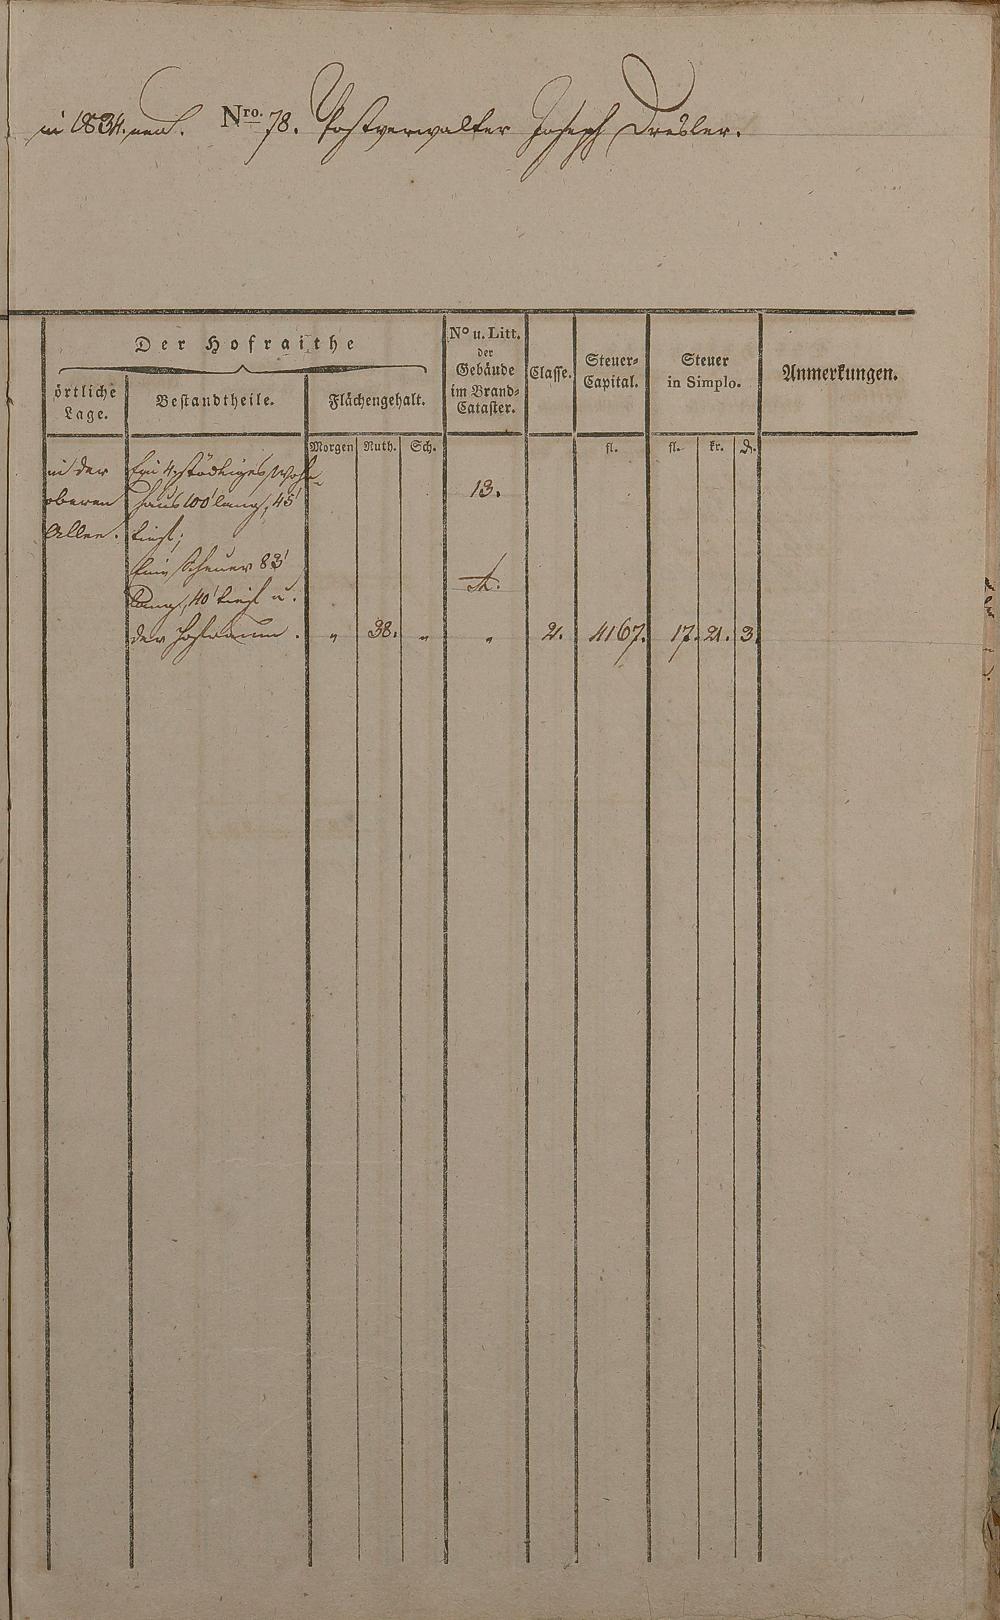 in 1834. neu. Nro. 78. Postverwalter Joseph Dresler.
Der Hofraithe
örtliche Lage.
Bestandtheile.
Flächengehalt.
No u. Litt. der Gebäude im Brand-Cataster.
Classe.
Steuer-Capital.
Steuer in Simplo.
Anmerkungen.
Morgen Ruth. Sch. fl. fl. kr. d.
in der Ein 4stöckiges Wohn-
oberen haus 100' lang, 45' 13.
Allee. tief;
Eine Scheuer 83' A.
lang, 40' tief u.
der Hofraum. " 38. " " 2. 4167. 17. 21. 3.